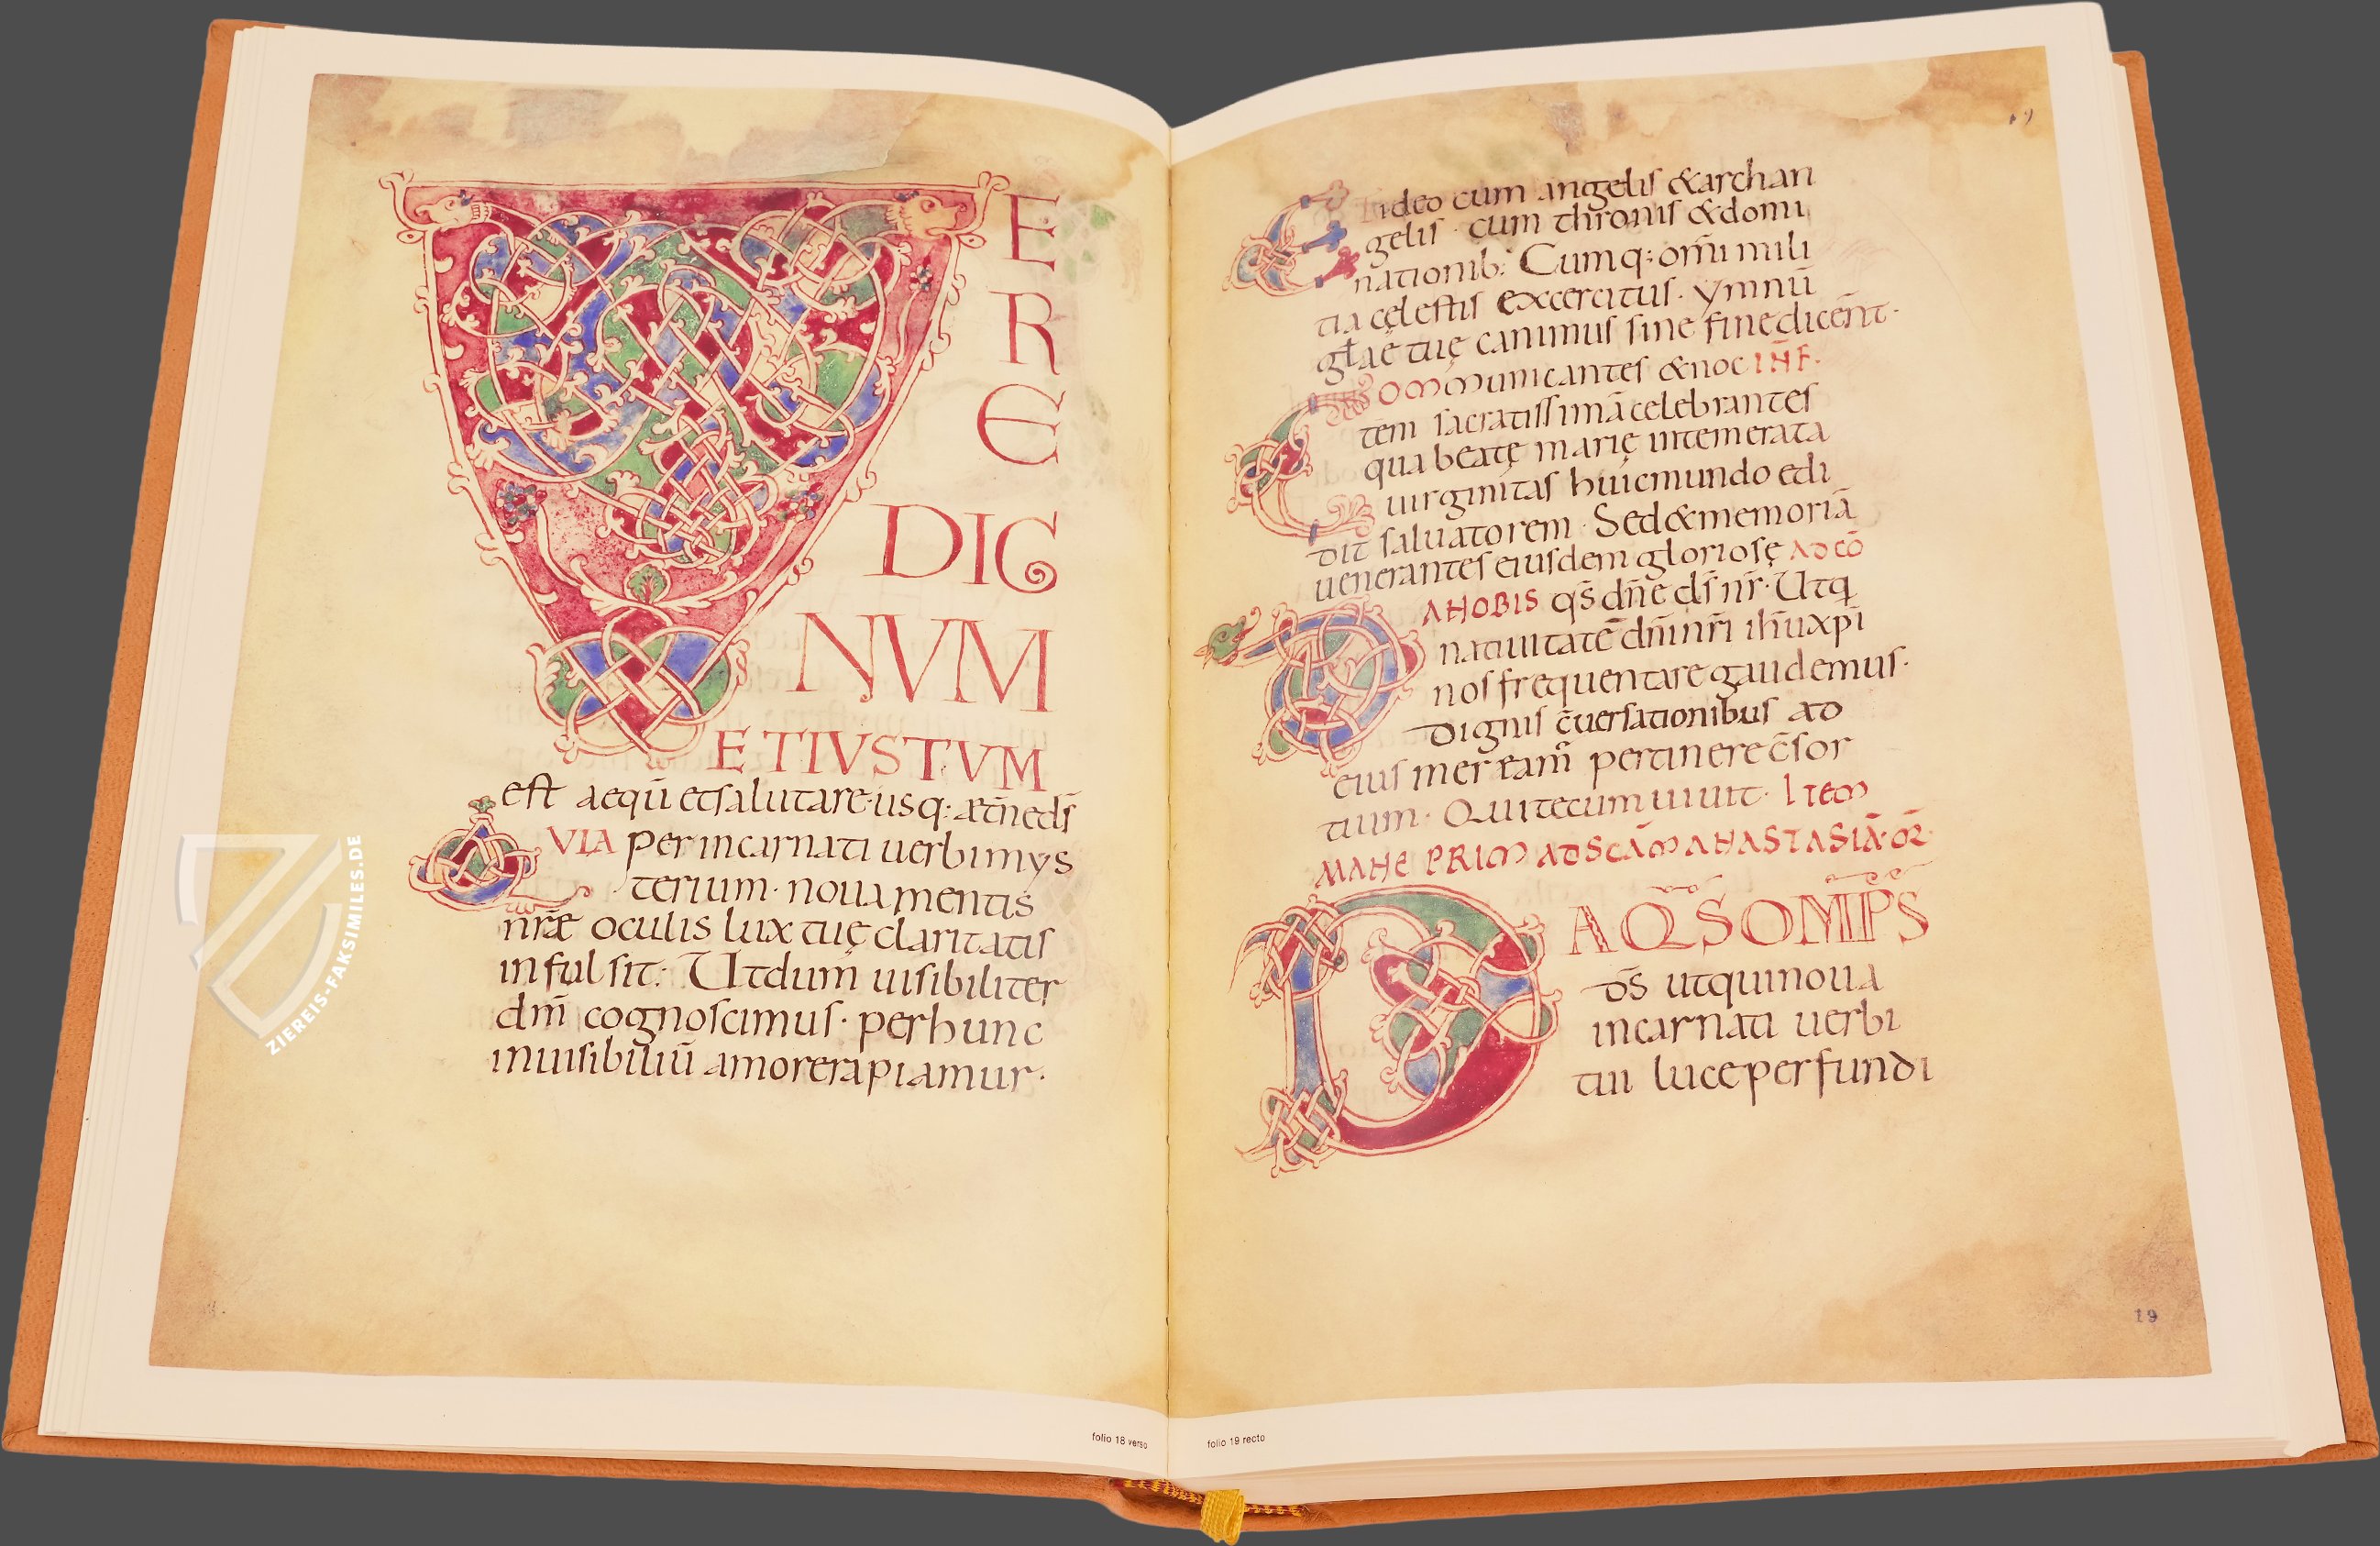 VERE
DIG
NVM
ETIVSTVM
est aequū etsalutare·usq: ætn̄eds̄
QVIA per incarnati uerbi mys
terium· noua mentis
nr̄æ oculis lux tuę claritatis
infulsit· Utdum uisibiliter
dm̄ cognoscimus· perhunc
inuisibiliū amorerapiamur·
folio 18 verso
19
Et ideo cum angelis &archan
gelis· cum thronis &domi
nationib: Cumq: om̄i mili
tia cęlestis excercitus· ymnū
gl̄ae tuę canimus sine finedicent̄·
Communicantes &noc INF̄·
tem sacratissimā celebrantes
qua beatę marię intemerata
uirginitas huicmundo edi
dit saluatorem· Sed&memoriā
uenerantes eiusdem gloriosę ADCŌ
DA NOBIS qs̄ dn̄e ds̄ nr̄· Utq
natiuitatē dn̄i nr̄i ihū xp̄i
nos frequentare gaudemus·
dignis c̄uersationibus ad
eius mereamr̄ pertinere c̄sor
tium· Qui tecum uiuit· Item
MANE PRIM ADSCĀM ANASTASIĀ·OR̄·
DA QS OMPS
ds̄ utquinoua
incarnati uerbi
tui luceperfundi
19
folio 19 recto
ZIEREIS-FAKSIMILES.DE